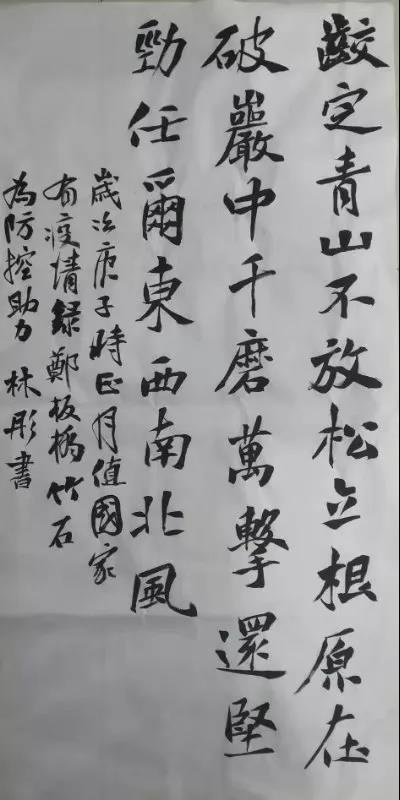 齩定青山不放松立根原在
破巖中千磨萬擊還堅
勁任爾東西南北風
歲次庚子時正月值國家
有疫情錄鄭板橋竹石
為防控助力 林彤書